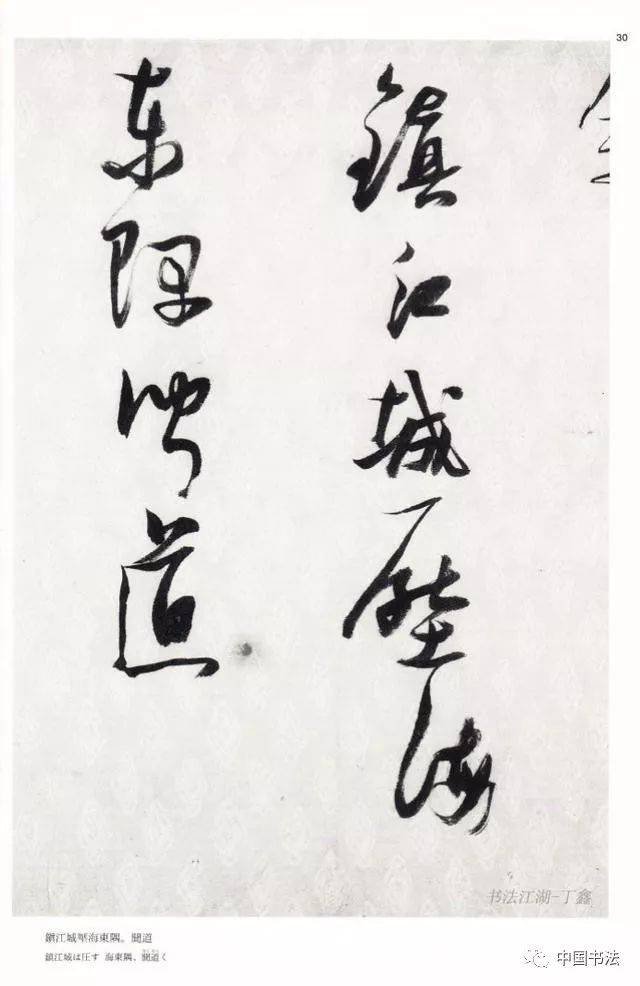 30
鎮江城壓海
東隅聞道
书法江湖-丁鑫
鎭江城壓海東隅。聞道
鎭江城は圧す 海東隅、聞道く
中国书法